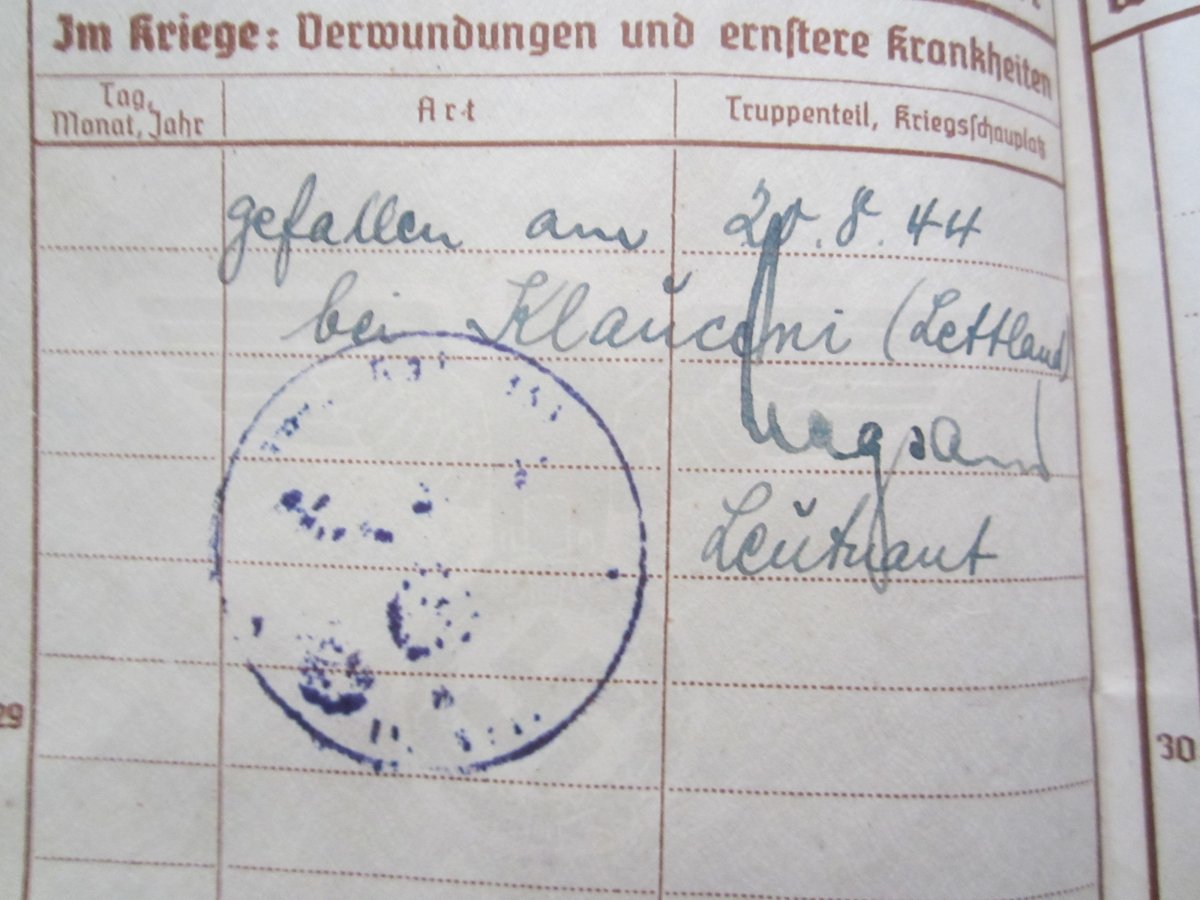 Im Kriege: Verwundungen und ernstere Krankheiten
Tag, Monat, Jahr
Art
Truppenteil, Kriegsschauplatz
gefallen am 20.8.44
bei (Lettland)
Leutnant
29
30